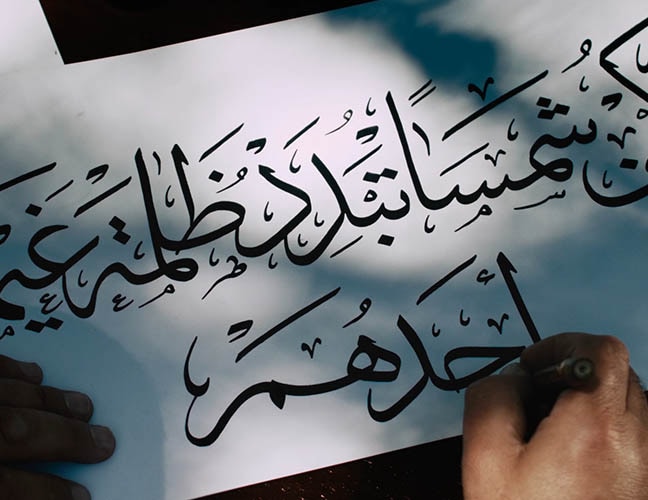 كن شمساً تبدِّد ظُلمة غَيم
أحدهم